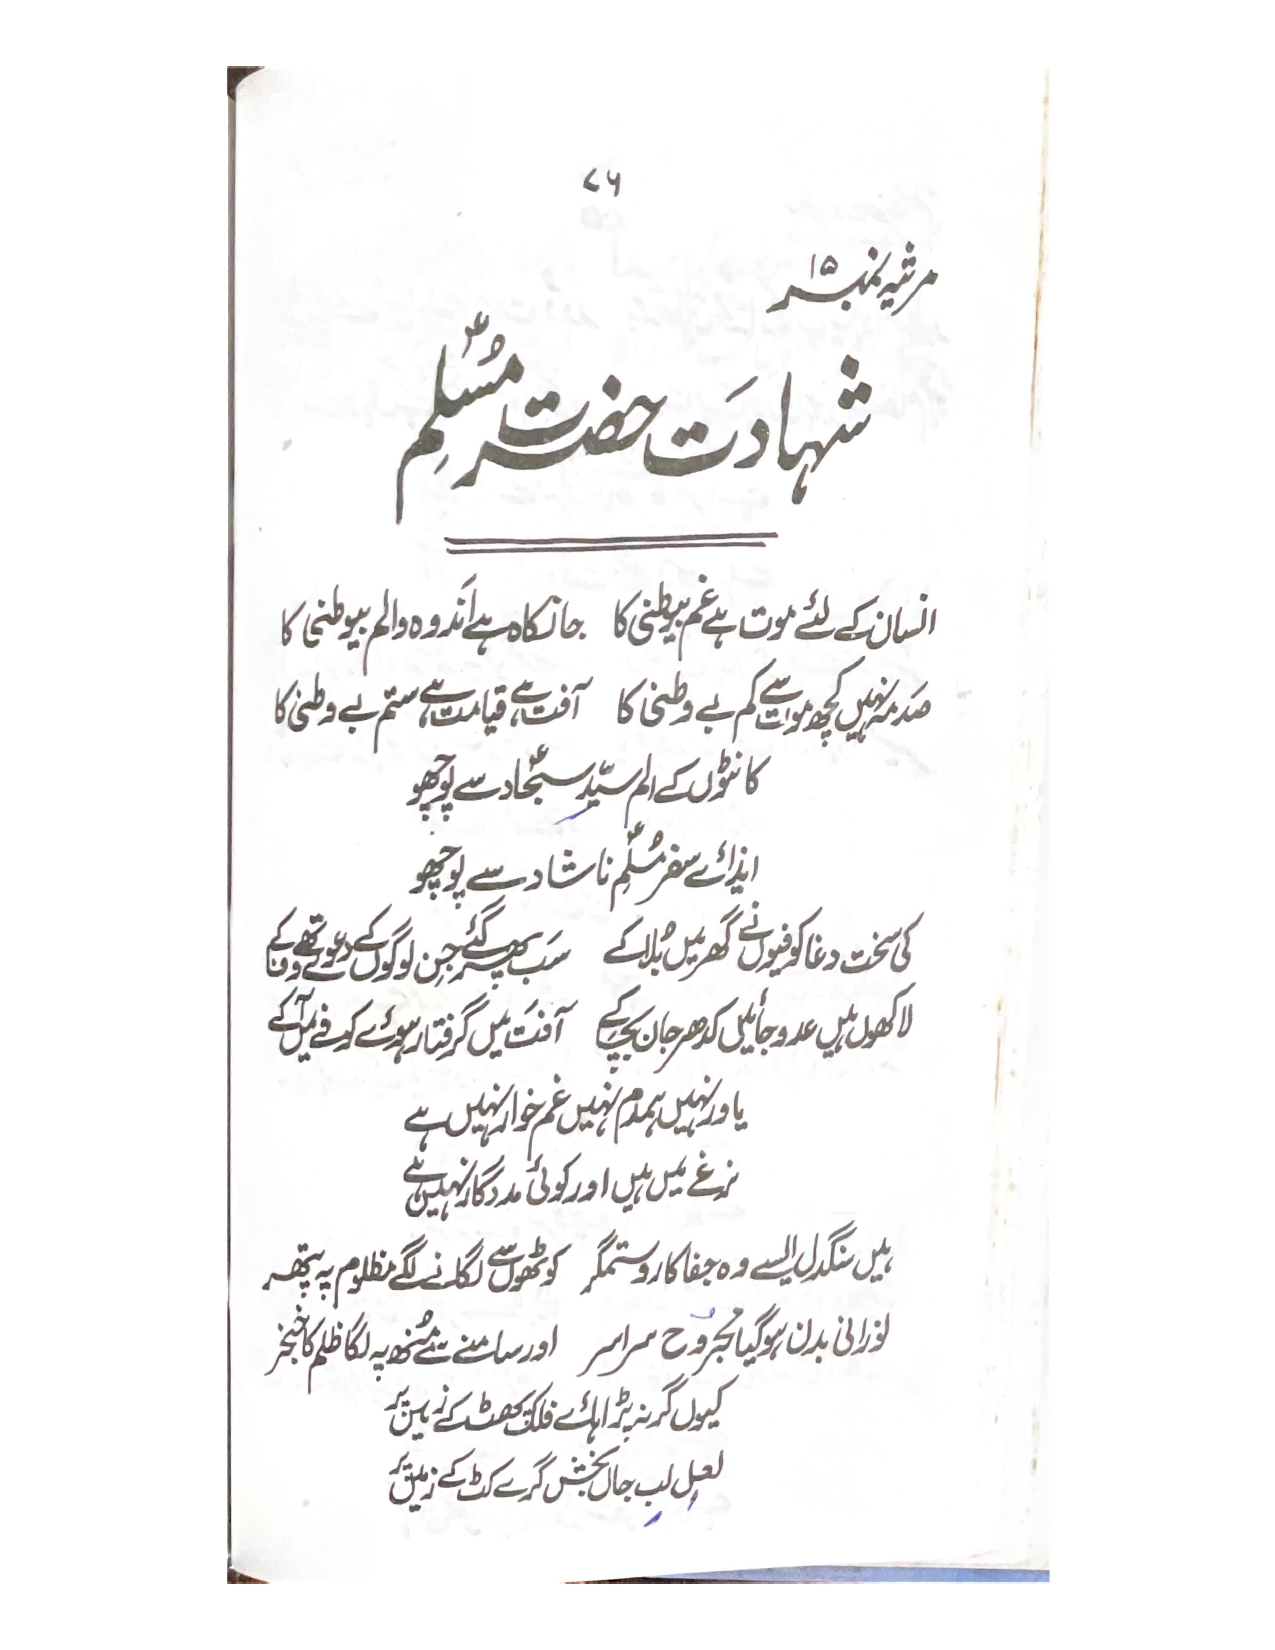 ۷۶
مرثیہ نمبر ۱۵
شہادت حضرت مُسلمؑ
انسان کے لئے موت ہے غم بیوطنی کا جانکاہ ہے اَندوہ والم بیوطنی کا
صَدمہ نہیں کچھ موت سے کم بے وطنی کا آفت ہے، قیامت ہے ستم بے وطنی کا
کانٹوں کے الم سیّدِ سجّادؑ سے پوچھو
ایذائے سفر مُسلمؑ ناشاد سے پوچھو
کی سخت دغا کوفیوں نے گھر میں بُلا کے سَب پھر گئے جِن لوگوں کے دعوے تھے وفا کے
لاکھوں ہیں عدو جأئیں کدھر جان بچا کے آفَت میں گرفتار ہوئے کوفے میں آ کے
یاور نہیں ہمدم نہیں غم خوار نہیں ہے
نرغے میں ہیں اور کوئی مددگار نہیں ہے
ہیں سنگدل ایسے وہ جفاکار و ستمگر کوٹھوں سے لگانے لگے مظلوم پہ پتھر
نورانی بدن ہو گیا مجرُوح سراسر اور سامنے سے مُنھ پہ لگا ظلم کا خنجر
کیوں گر نہ پڑا ہائے فلک پھٹ کے زمین پر
لعلِ لبِ جاں بخش گرے کٹ کے زمیں پر